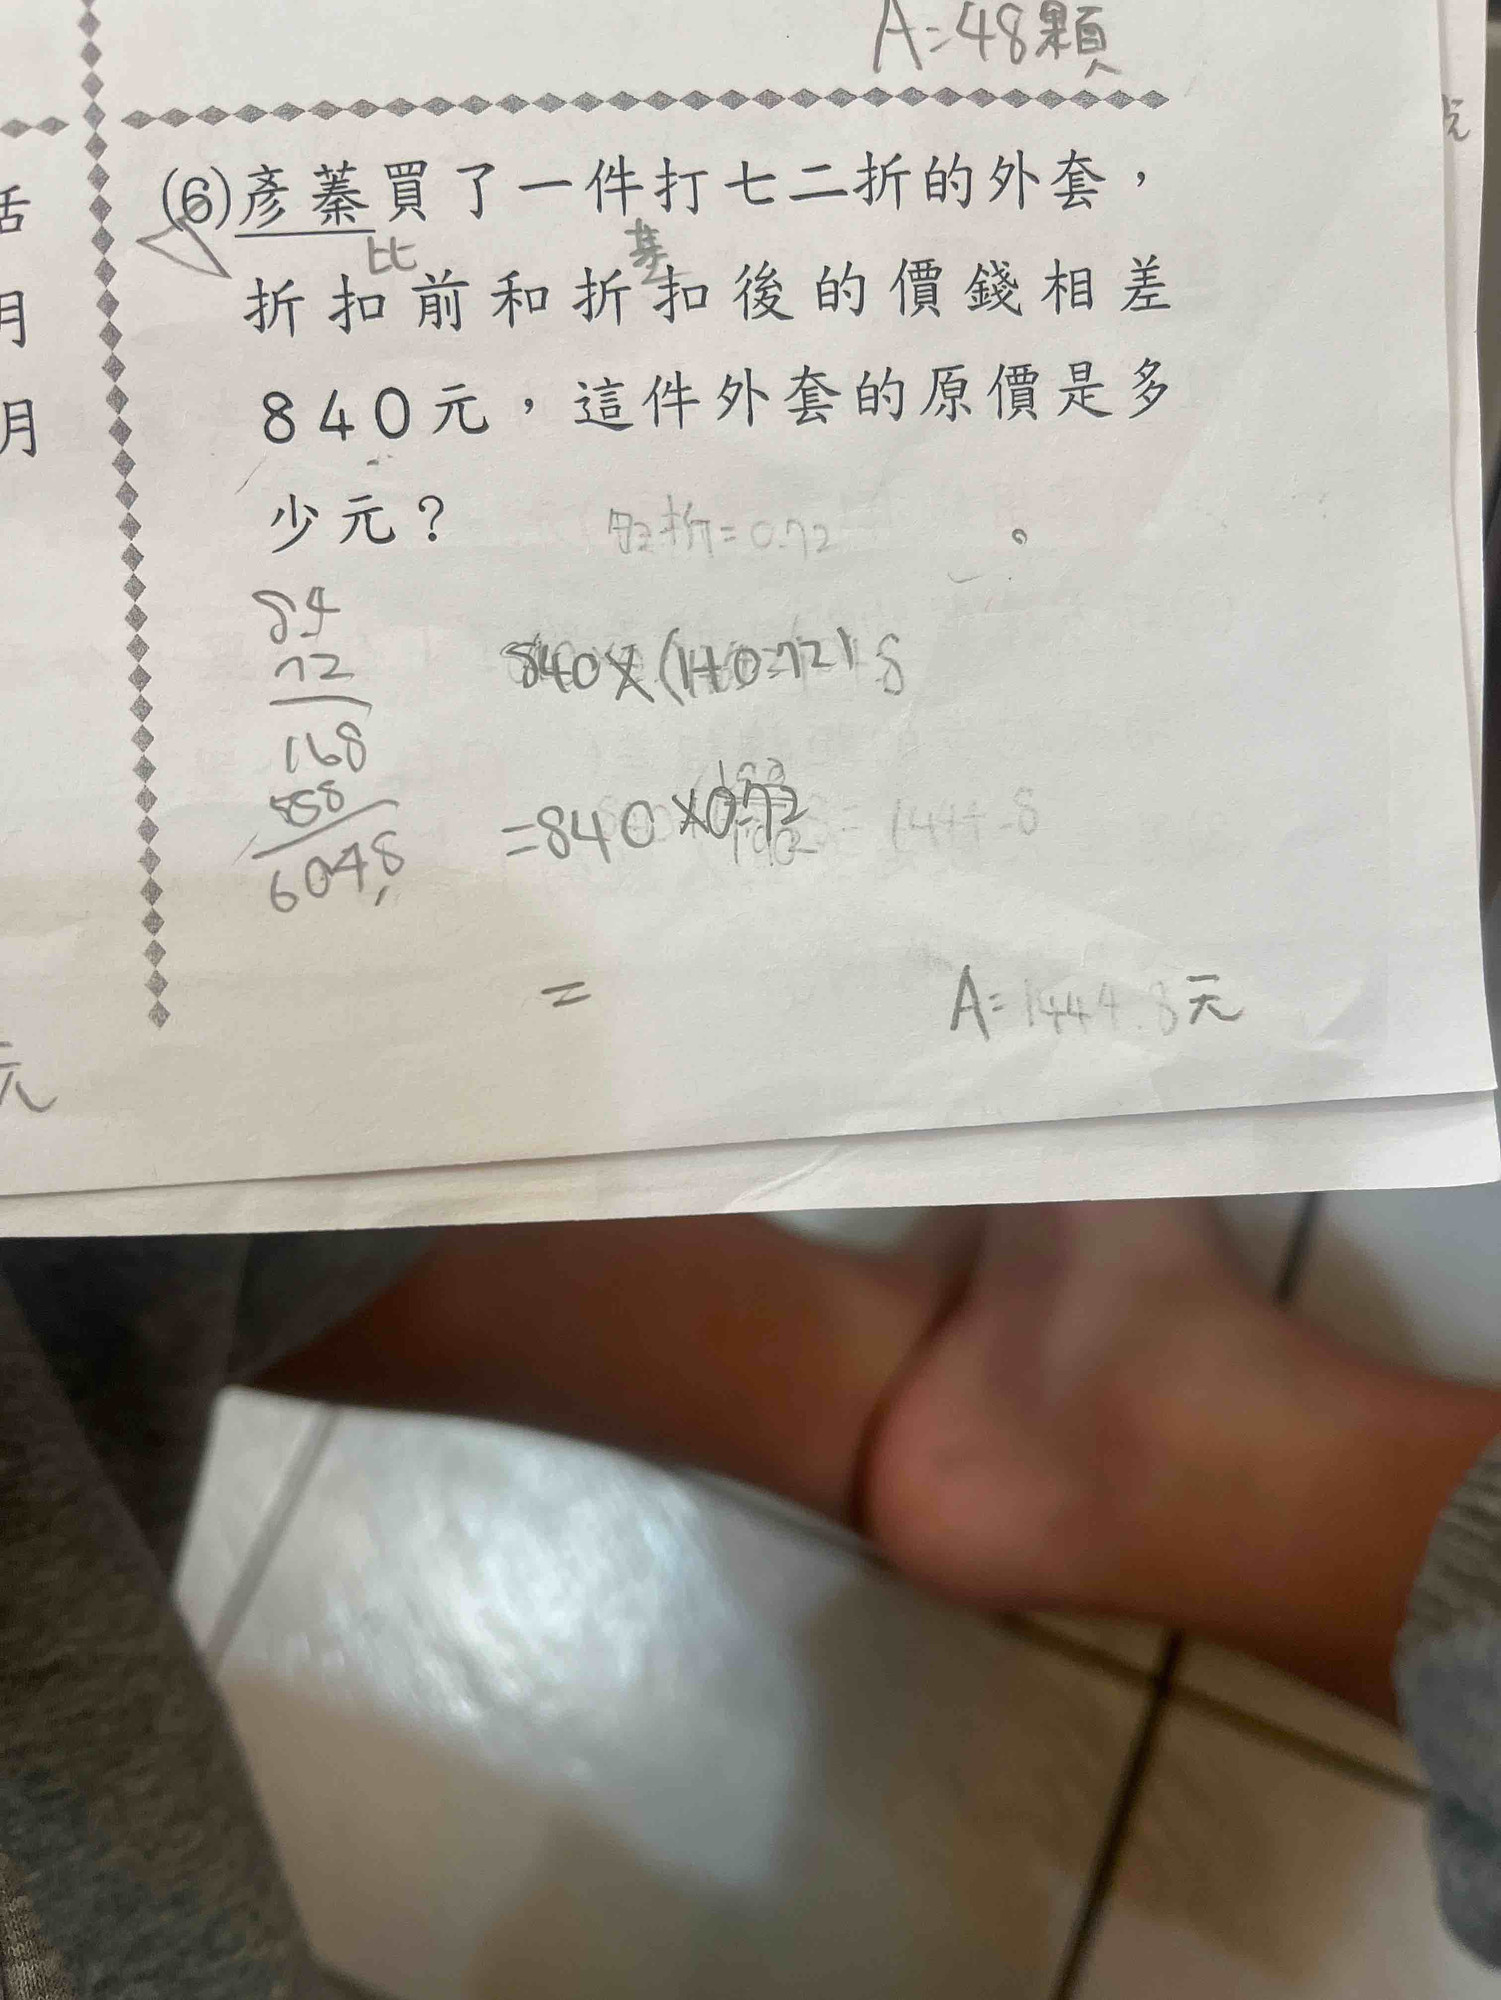 A=48顆
(6)彥蓁買了一件打七二折的外套，
比
基
折扣前和折扣後的價錢相差
840元，這件外套的原價是多
少元？
七二折=0.72
84
72
168
588
6048
840×(1+0.72)
=840×0.72
=144+.8
=
A=1444.8元
活
月
月
元
元